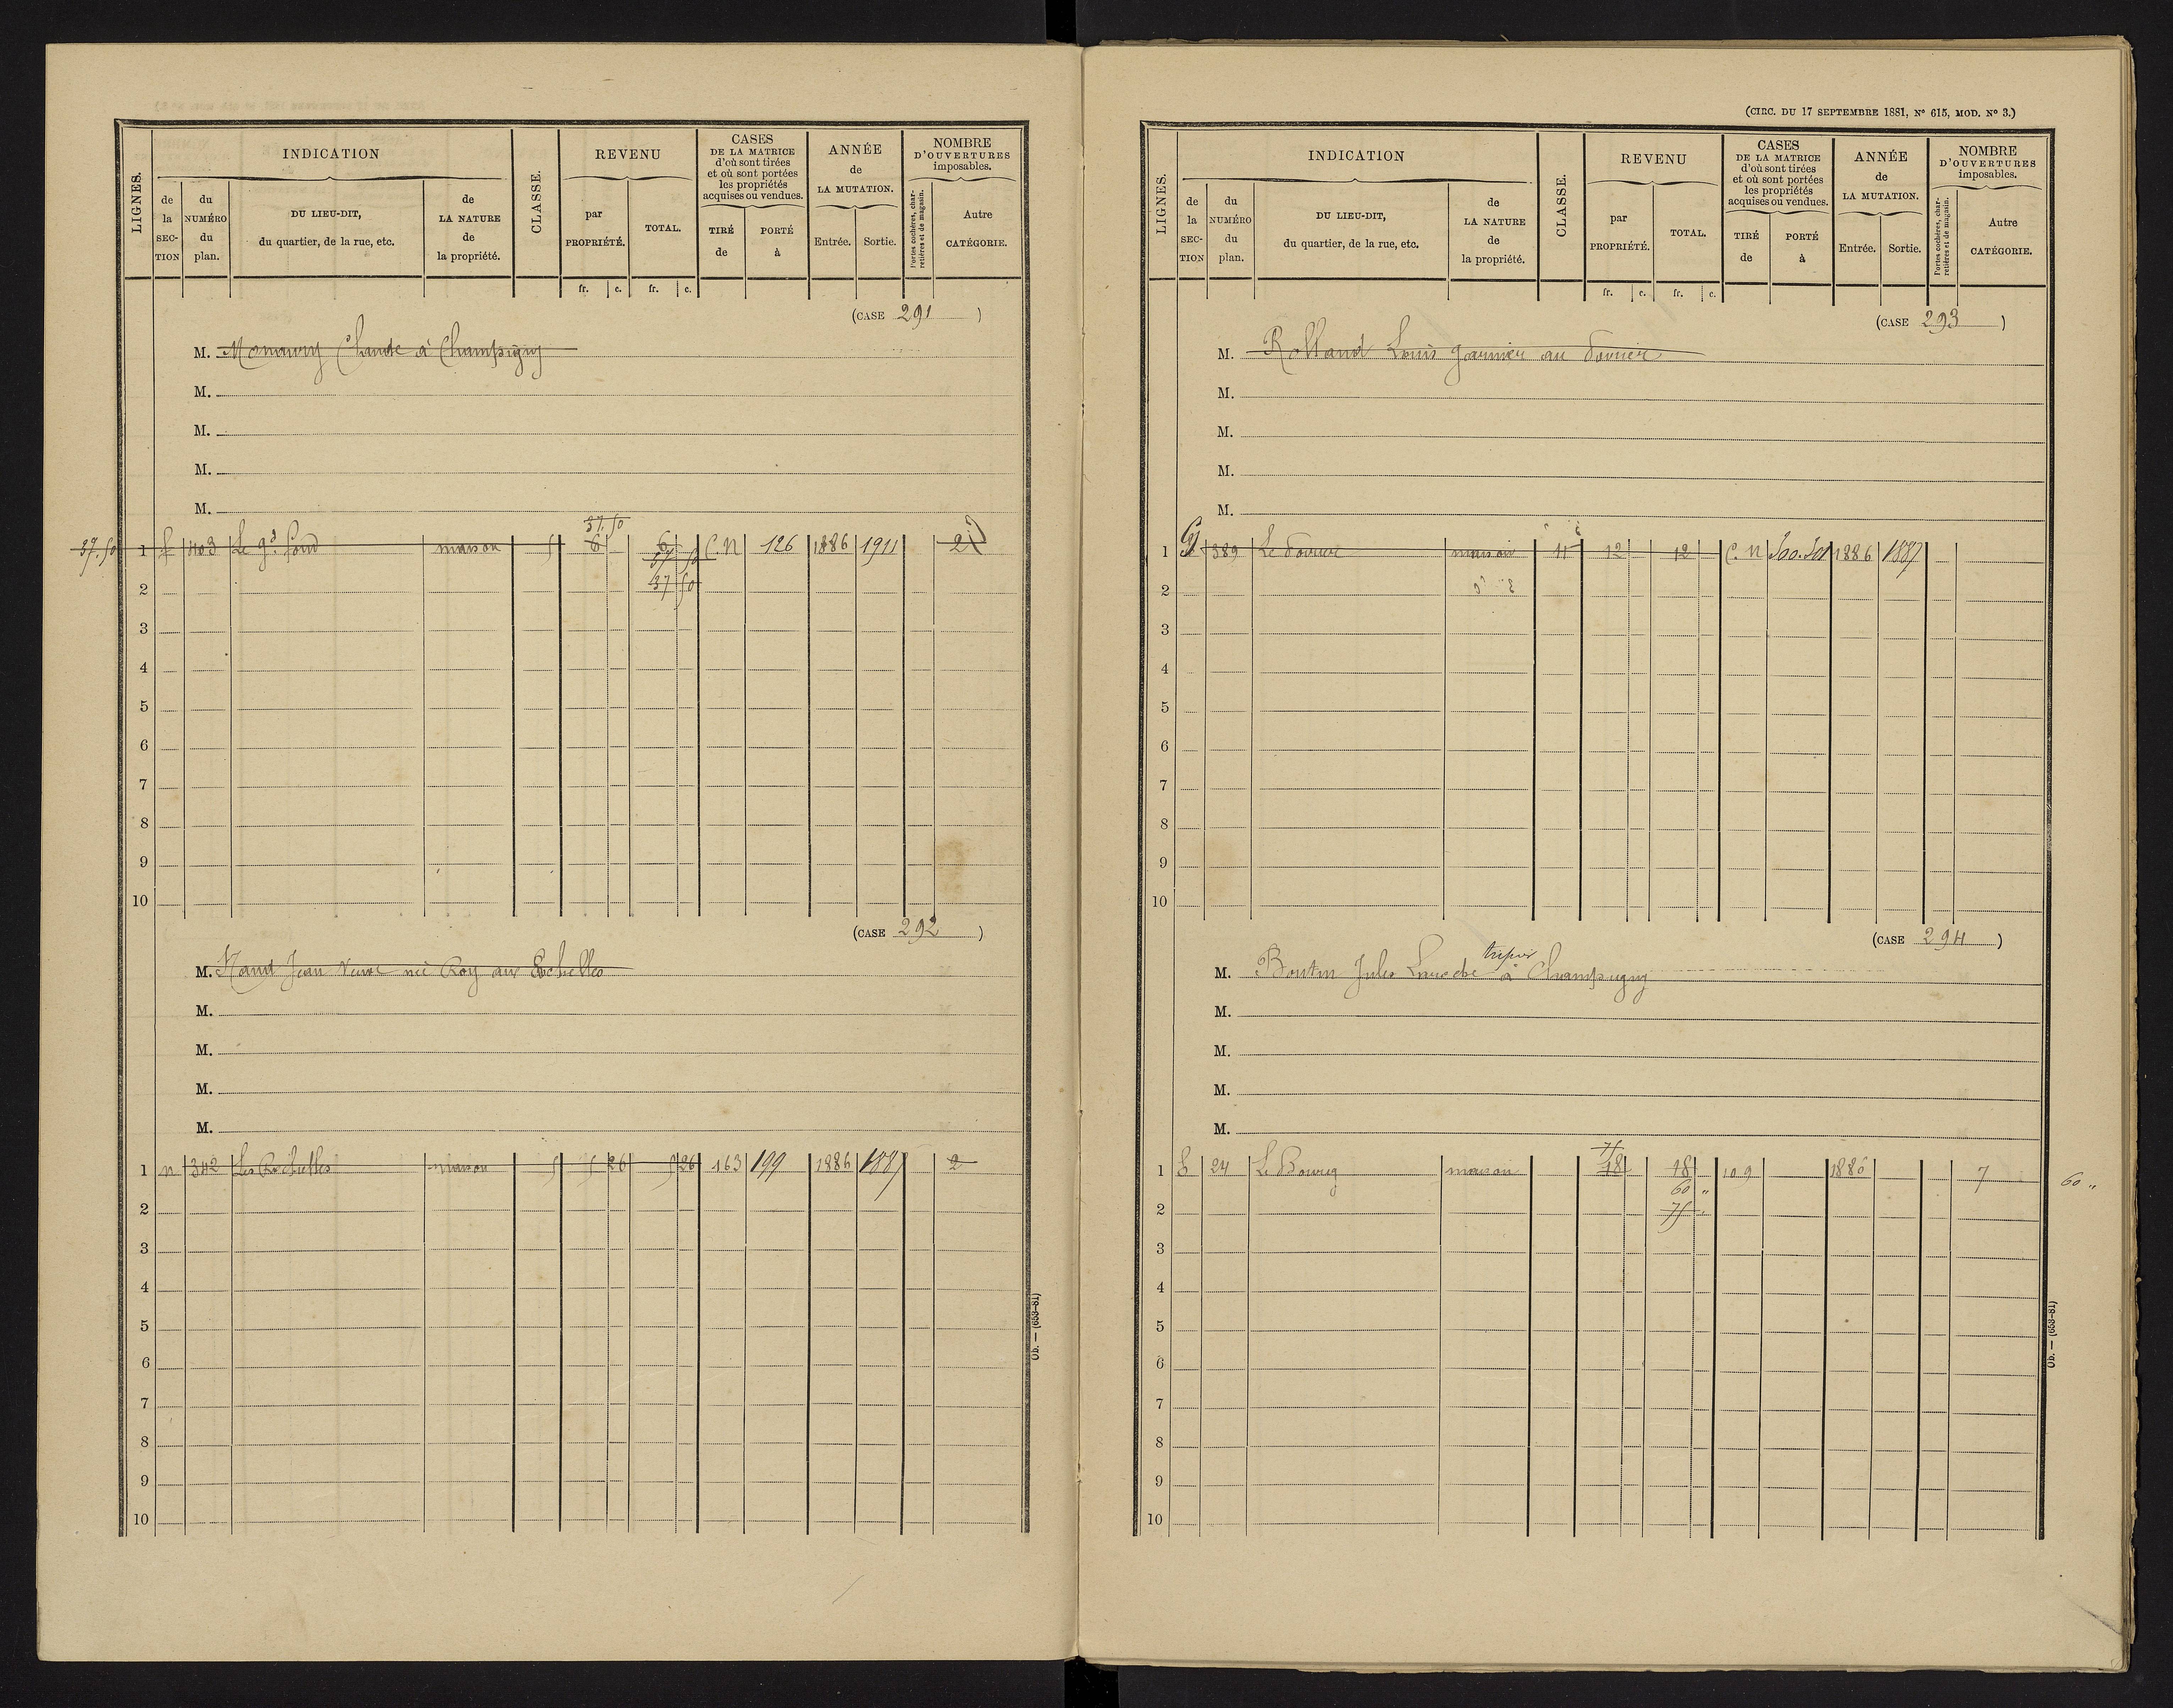 LIGNES.
INDICATION
de la SEC-TION
du NUMÉRO du plan.
DU LIEU-DIT, du quartier, de la rue, etc.
de LA NATURE de la propriété.
CLASSE.
REVENU
par PROPRIÉTÉ.
TOTAL.
CASES DE LA MATRICE d'où sont tirées et où sont portées les propriétés acquises ou vendues.
TIRÉ de
PORTÉ à
ANNÉE de LA MUTATION.
Entrée. Sortie.
NOMBRE D'OUVERTURES imposables.
Portes cochères, charretières et de magasin.
Autre CATÉGORIE.
fr. c. fr. c.
(CASE 291)
M. Claude à Champigny
M.
M.
M.
M.
37.50
37.50 1 f 403 Le gd fond maison 5 6 6 C. N 126 1886 1911 2
37 50
2 37 50
3
4
5
6
7
8
9
10
(CASE 292)
M. Jean Veuve née Roy aux Rochelles
M.
M.
M.
M.
1 n 342 Les Rochelles maison 5 5 26 5 26 163 199 1886 1887 2
2
3
4
5
6
7
8
9
10
Ob. — (653-81)
(CIRC. DU 17 SEPTEMBRE 1881, N° 615, MOD. N° 3.)
LIGNES.
INDICATION
de la SEC-TION
du NUMÉRO du plan.
DU LIEU-DIT, du quartier, de la rue, etc.
de LA NATURE de la propriété.
CLASSE.
REVENU
par PROPRIÉTÉ.
TOTAL.
CASES DE LA MATRICE d'où sont tirées et où sont portées les propriétés acquises ou vendues.
TIRÉ de
PORTÉ à
ANNÉE de LA MUTATION.
Entrée. Sortie.
NOMBRE D'OUVERTURES imposables.
Portes cochères, charretières et de magasin.
Autre CATÉGORIE.
fr. c. fr. c.
(CASE 293)
M. Rolland Louis garnier au
M.
M.
M.
M.
1 389 Le maison 11 12 12 C. N 300.301 1886 1887
2
3
4
5
6
7
8
9
10
(CASE 294)
M. Boutin Jules à Champigny
M.
M.
M.
M.
75
1 24 Le Bourg maison 18 18 109 1886 7 60 "
60 "
2 75 "
3
4
5
6
7
8
9
10
Ob. — (653-81)